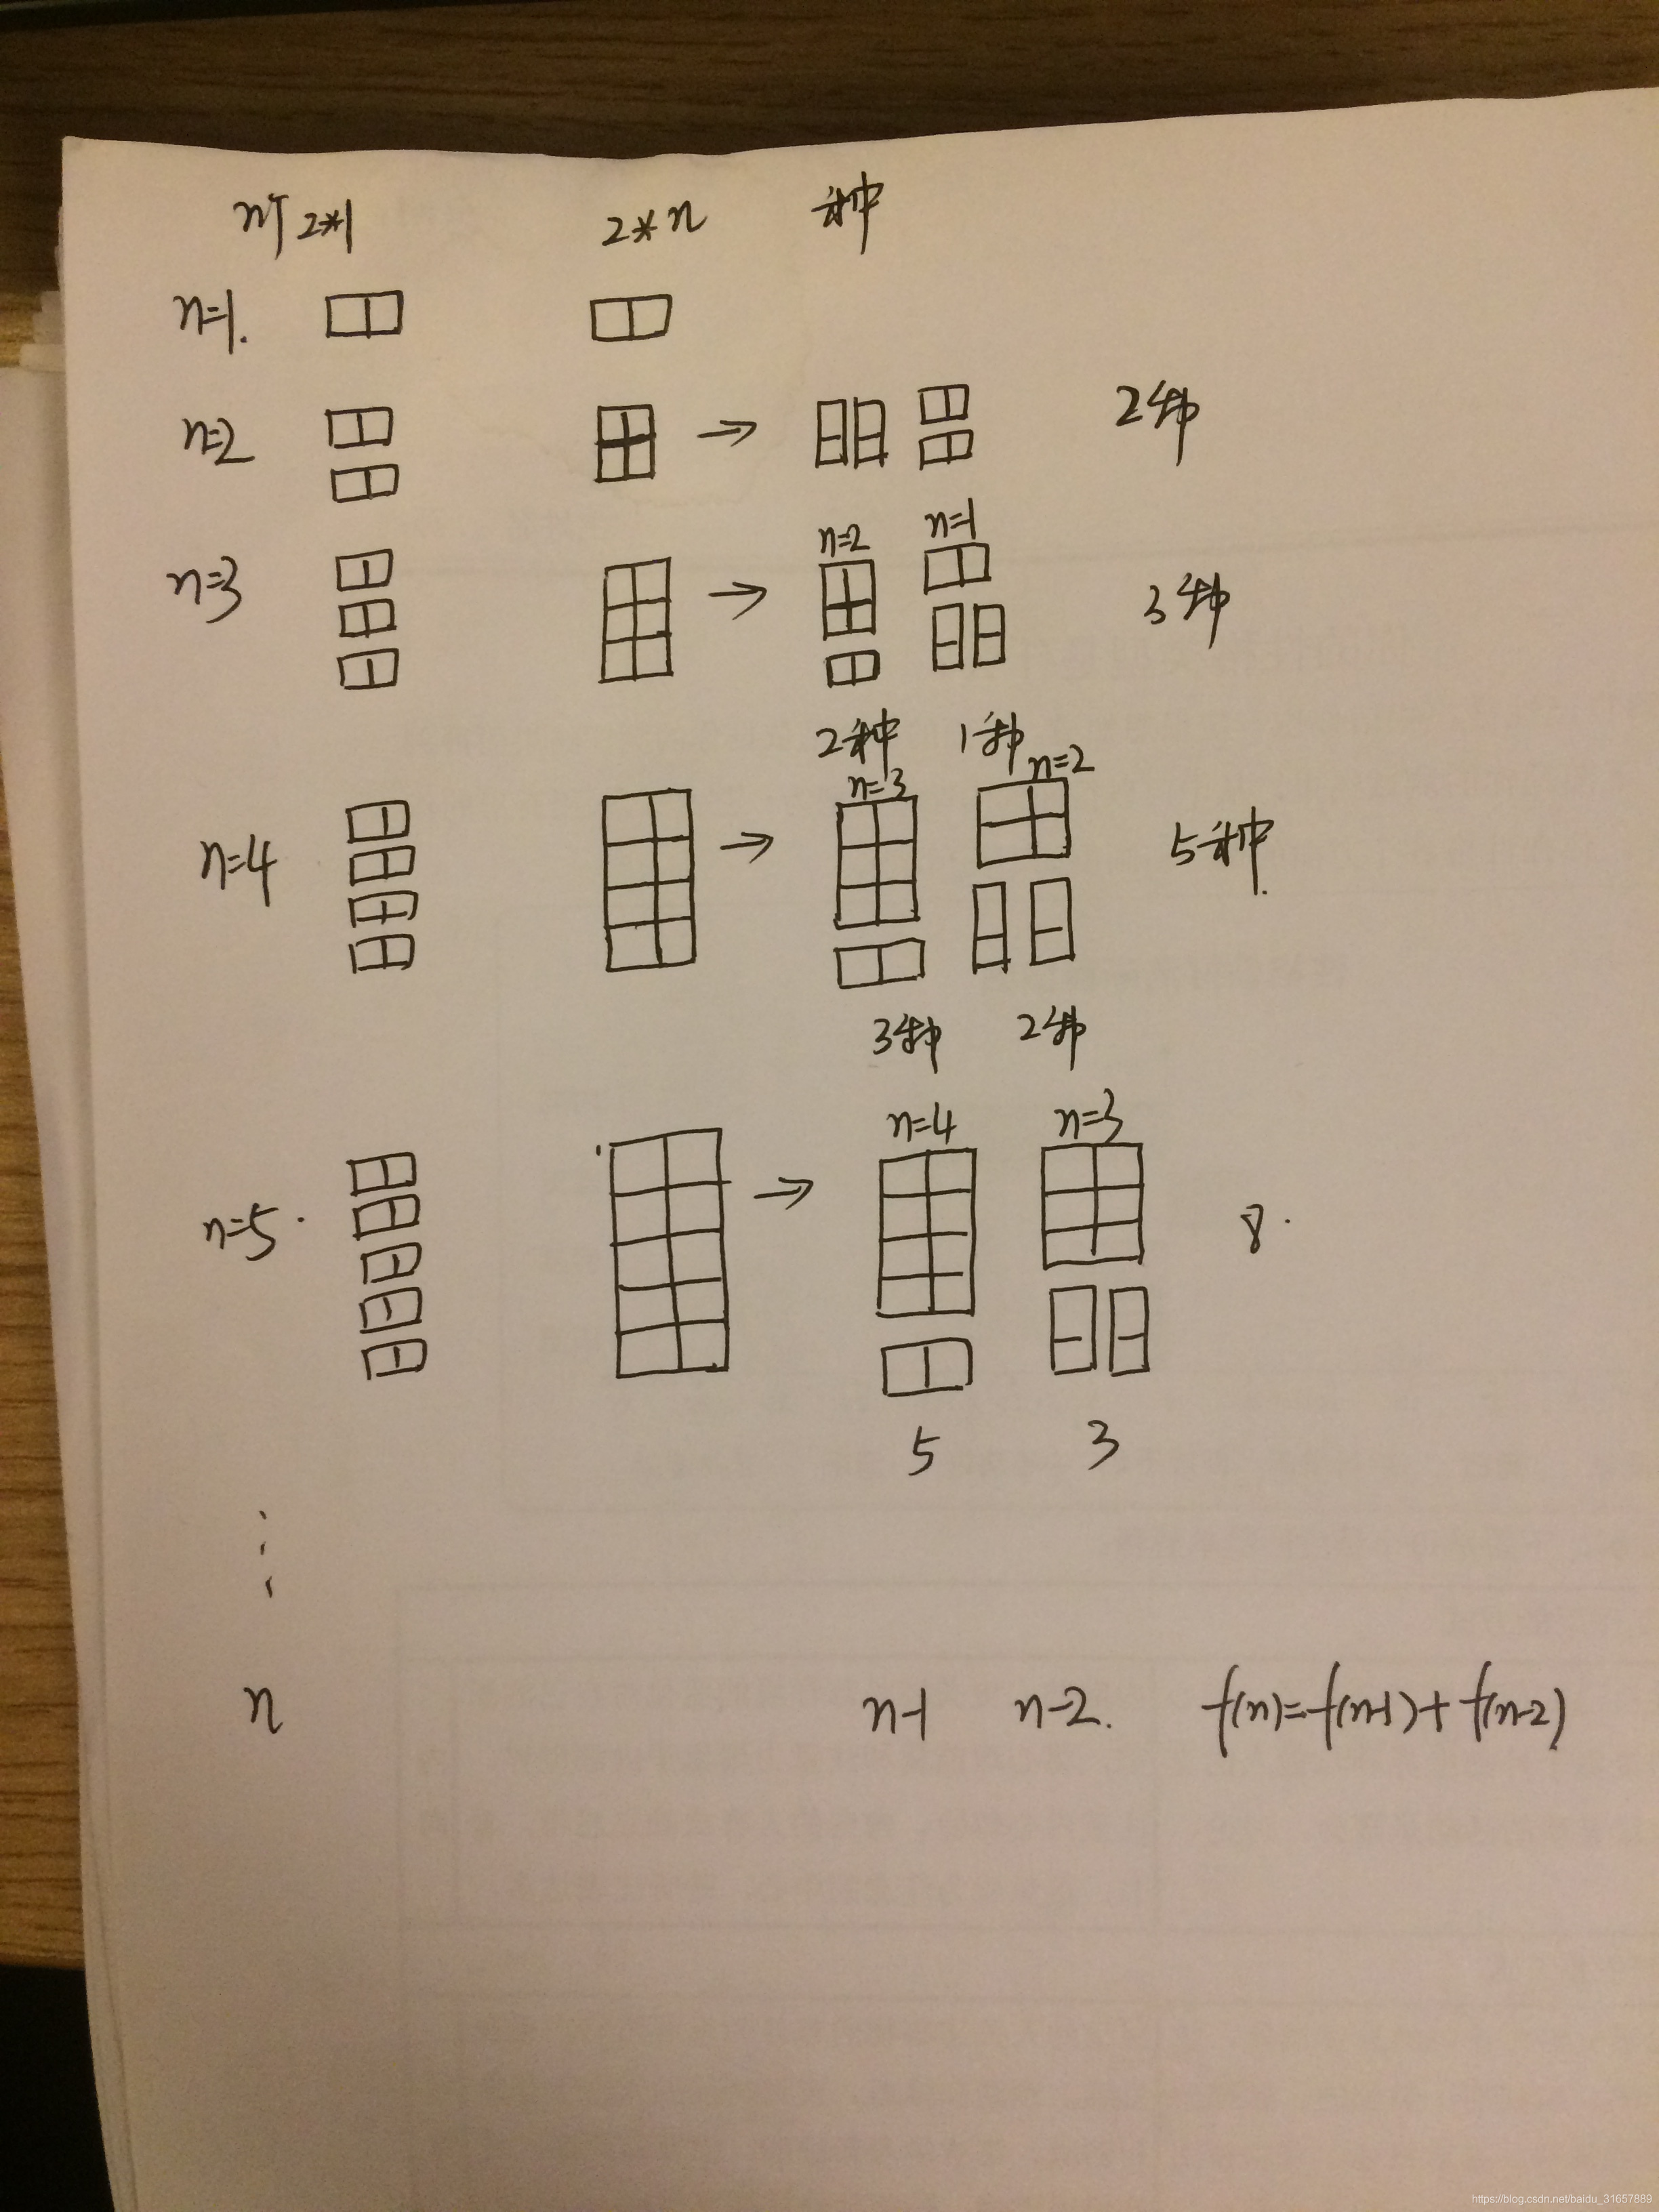 n个 2*1 2*n 种
n=1.
n=2 2种
n=2 n=1
n=3 3种
2种 1种
n=3 n=2
n=4 5种.
3种 2种
n=4 n=3
n=5. 8.
5 3
n n-1 n-2. f(n)=f(n-1)+f(n-2)
https://blog.csdn.net/baidu_31657889